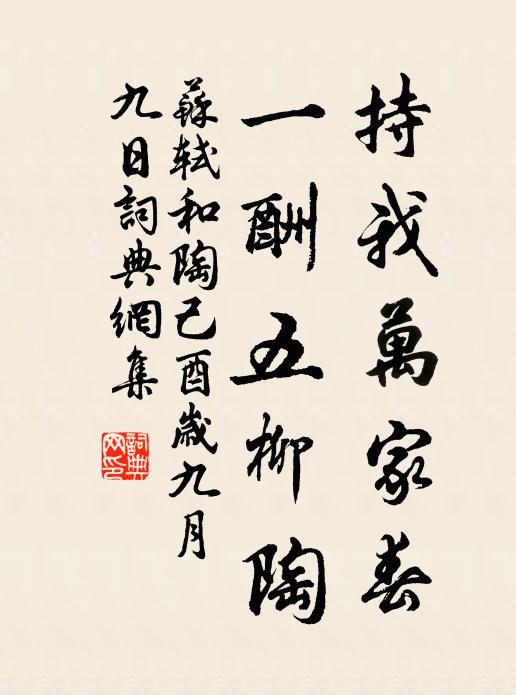 持我萬家春
一酬五柳陶
蘇軾和陶己酉歲九月
九日詞典網集
詞典
网印